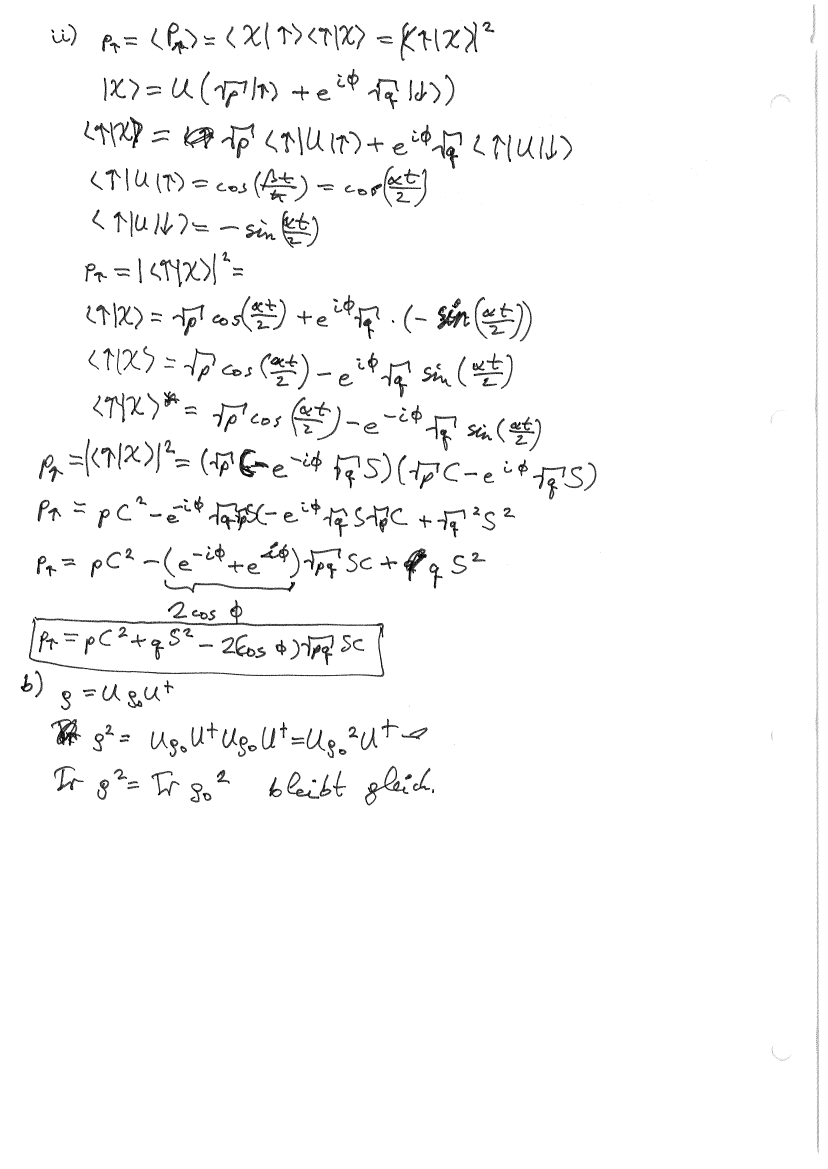 ii) p↑ = ⟨P↑⟩ = ⟨χ|↑⟩⟨↑|χ⟩ = |⟨↑|χ⟩|²
|χ⟩ = U(√p|↑⟩ + e^{iϕ} √q |↓⟩)
⟨↑|χ⟩ = √p ⟨↑|U|↑⟩ + e^{iϕ} √q ⟨↑|U|↓⟩
⟨↑|U|↑⟩ = cos(βt/ħ) = cos(αt/2)
⟨↑|U|↓⟩ = − sin(αt/2)
p↑ = |⟨↑|χ⟩|² =
⟨↑|χ⟩ = √p cos(αt/2) + e^{iϕ} √q · (− sin(αt/2))
⟨↑|χ⟩ = √p cos(αt/2) − e^{iϕ} √q sin(αt/2)
⟨↑|χ⟩* = √p cos(αt/2) − e^{−iϕ} √q sin(αt/2)
p↑ = |⟨↑|χ⟩|² = (√p C − e^{−iϕ} √q S)(√p C − e^{iϕ} √q S)
p↑ = pC² − e^{−iϕ} √q √p SC − e^{iϕ} √q S √p C + √q² S²
p↑ = pC² − (e^{−iϕ} + e^{iϕ}) √pq SC + q S²
2 cos ϕ
p↑ = pC² + qS² − 2(cos ϕ) √pq SC
b) ρ = U ρ₀ U†
ρ² = U ρ₀ U† U ρ₀ U† = U ρ₀² U†
Tr ρ² = Tr ρ₀² bleibt gleich.